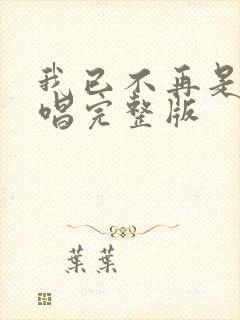 我已不再是
唱完整版
葉葉